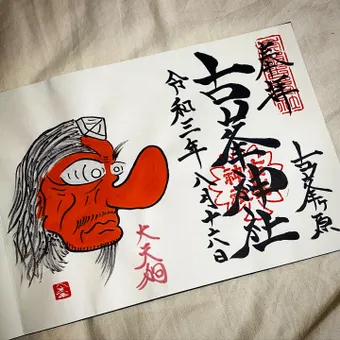 奉拝
古峯ヶ原
古峯神社
令和三年八月十六日
大天狗